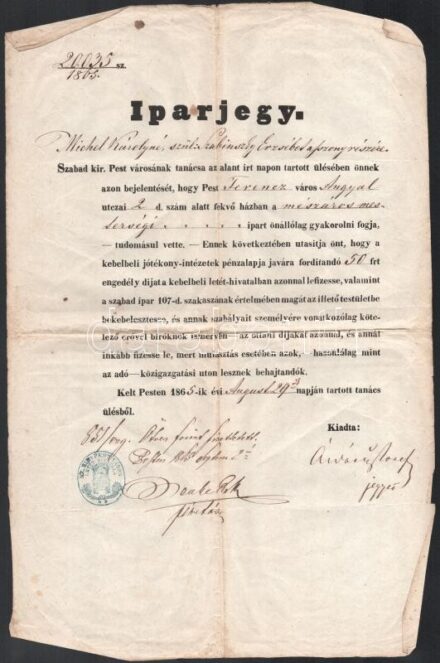 20,035 sz.
1865.
Iparjegy.
Michel Károlyné, szül. Erzsébet asszony részére.
Szabad kir. Pest városának tanácsa az alant irt napon tartott ülésében önnek
azon bejelentését, hogy Pest Ferencz város Angyal
utczai 2 d. szám alatt fekvő házban a mészáros mes-
terségi . . . . . ipart önállólag gyakorolni fogja,
— tudomásul vette. — Ennek következtében utasitja önt, hogy a
kebelbeli jótékony-intézetek pénzalapja javára forditandó 50 frt
engedély dijat a kebelbeli letét-hivatalban azonnal lefizesse, valamint
a szabad ipar 107-d. szakaszának értelmében magát az illető testületbe
bekebeleztesse, és annak szabályait személyére vonatkozólag köte-
lező erővel biróknak ismervén — az ottani dijakat azonnal, és annál
inkább fizesse le, mert mulasztás esetében azok, — hasonlólag mint
az adó — közigazgatási uton lesznek behajtandók.
Kelt Pesten 1865-ik évi August 29 napján tartott tanács
ülésből.
Kiadta:
Ötven forint
Pesten 1865
jegyző